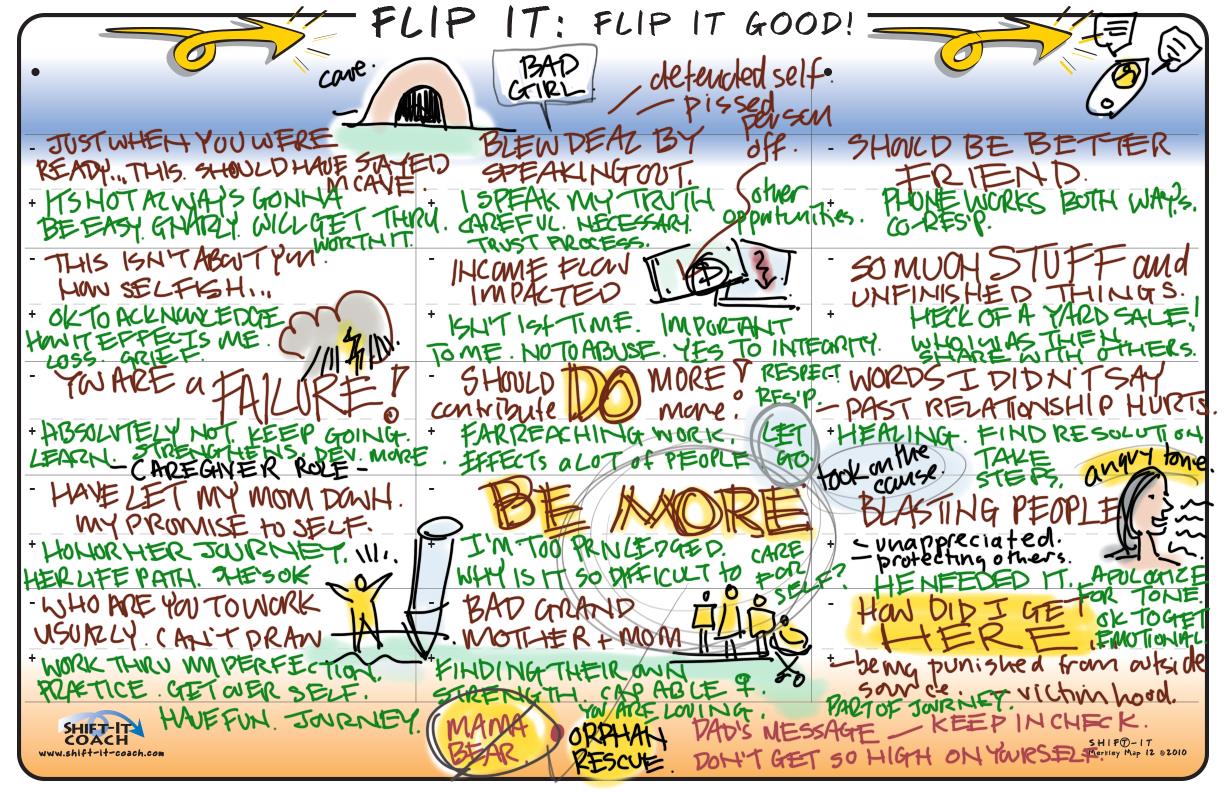 FLIP IT: FLIP IT GOOD!
cave.
BAD
GIRL
defended self.
pissed
person
off.
JUST WHEN YOU WERE
READY... THIS. SHOULD HAVE STAYED
IN CAVE.
IT'S NOT ALWAYS GONNA
BE EASY. GNARLY. WILL GET THRU.
WORTH IT.
THIS ISN'T ABOUT YOU.
HOW SELFISH...
OK TO ACKNOWLEDGE
HOW IT EFFECTS ME
LOSS. GRIEF.
YOU ARE a FAILURE!
ABSOLUTELY NOT. KEEP GOING.
LEARN. STRENGTHENS. DEV. MORE
- CAREGIVER ROLE -
HAVE LET MY MOM DOWN.
MY PROMISE to SELF.
HONOR HER JOURNEY.
HER LIFE PATH. SHE'S OK
WHO ARE YOU TO WORK
USUALLY. CAN'T DRAW
WORK THRU IMPERFECTION.
PRACTICE. GET OVER SELF.
HAVE FUN. JOURNEY.
BLEW DEAL BY
SPEAKING OUT.
I SPEAK MY TRUTH
CAREFUL. NECESSARY.
TRUST PROCESS.
other
opportunities.
INCOME FLOW
IMPACTED
$
ISN'T 1st TIME. IMPORTANT
TO ME. NO TO ABUSE. YES TO INTEGRITY.
SHOULD DO MORE!
contribute more!
RESPECT
RESP.
FAR REACHING WORK.
EFFECTS a LOT of PEOPLE
LET
GO.
BE MORE
I'M TOO PRIVLEDGED.
WHY IS IT SO DIFFICULT to
CARE
FOR
SELF?
BAD GRAND
MOTHER + MOM
FINDING THEIR OWN
STRENGTH. CAPABLE
YOU ARE LOVING.
MAMA
BEAR.
ORPHAN
RESCUE.
SHOULD BE BETTER
FRIEND.
PHONE WORKS BOTH WAYS.
CO-RESP.
SO MUCH STUFF and
UNFINISHED THINGS.
HECK OF A YARD SALE!
WHO I WAS THEN
SHARE WITH OTHERS.
WORDS I DIDN'T SAY
- PAST RELATIONSHIP HURTS.
HEALING. FIND RESOLUTION
TAKE
STEPS.
took on the
cause.
angry tone.
BLASTING PEOPLE
- unappreciated.
- protecting others.
HE NEEDED IT.
APOLOGIZE
FOR TONE.
OK TO GET
EMOTIONAL
HOW DID I GET
HERE
- being punished from outside
source. - victimhood.
PART OF JOURNEY.
DAD'S MESSAGE — KEEP IN CHECK.
DON'T GET SO HIGH ON YOURSELF.
SHIFT-IT
COACH
www.shift-it-coach.com
SHIFT-IT
Merkley Map 12 ©2010